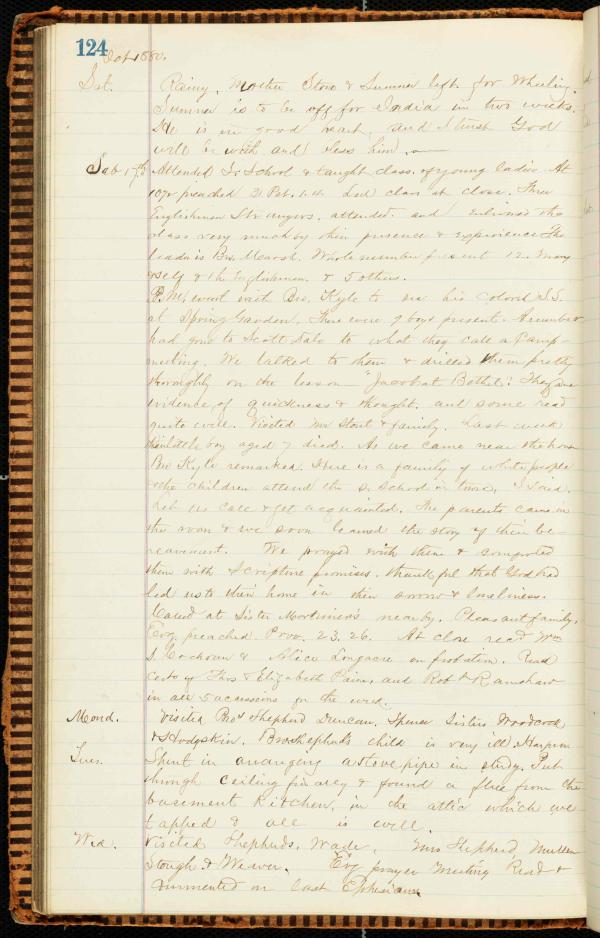 124 Oct 1880.
Sat. Rainy. Mother Stone & Sumner left for Wheeling.
Sumner is to be off for India in two weeks.
He is in good heart, and I trust God
will be with and bless him.
Sab 17th Attended S. School & taught class of young ladies. At
10½ preached 2 Pet. 1.4. Led class at close. Three
Englishmen Strangers, attended and enlivened the
class very much by their presence & experience. The
leader is Bro. Mearsh. Whole number present 12. Mary
& self & the Englishmen & 5 others.
P.M. went with Bro. Kyle to see his colored S.S.
at Spring Garden. There were 9 boys present. A number
had gone to Scott Dale to what they call a Camp-
meeting. We talked to them & drilled them pretty
thoroughly on the lesson "Jacob at Bethel": They gave
evidence of quickness & thought, and some read
quite well. Visited Mr Stout & family. Last week
their little boy aged 7 died. As we came near the house
Bro Kyle remarked there is a family of white people
& the children attend the S. School in town, I said
let us call & get acquainted. The parents came in
the room & we soon learned the story of their be-
reavement. We prayed with them & comforted
them with Scripture promises. Thankful that God had
led us to their home in their sorrow & loneliness.
Called at Sister Mortimer's nearby. Pleasant family.
Evg. preached Prov. 23.26. At close recd Wm
S. Cochran & Alice Longacre on probation. Read
certs of Thos & Elizabeth Paine, and Robt Ramshaw
in all 5 accessions for the week.
Mond. Visited Bros Shepherd Duncan, Spence Sisters Woodcock
& Hodgskin. Bro Shepherd's child is very ill.
Tues. Spent in arranging a stove pipe in study. Put
through ceiling finally & found a flue from the
basement kitchen, in the attic which we
tapped & all is well.
Wed. Visited Shepherds, Wade, Mrs Shepherd Mullen
Stough & Weaver. Evg prayer meeting Read &
commented on last Ephesians